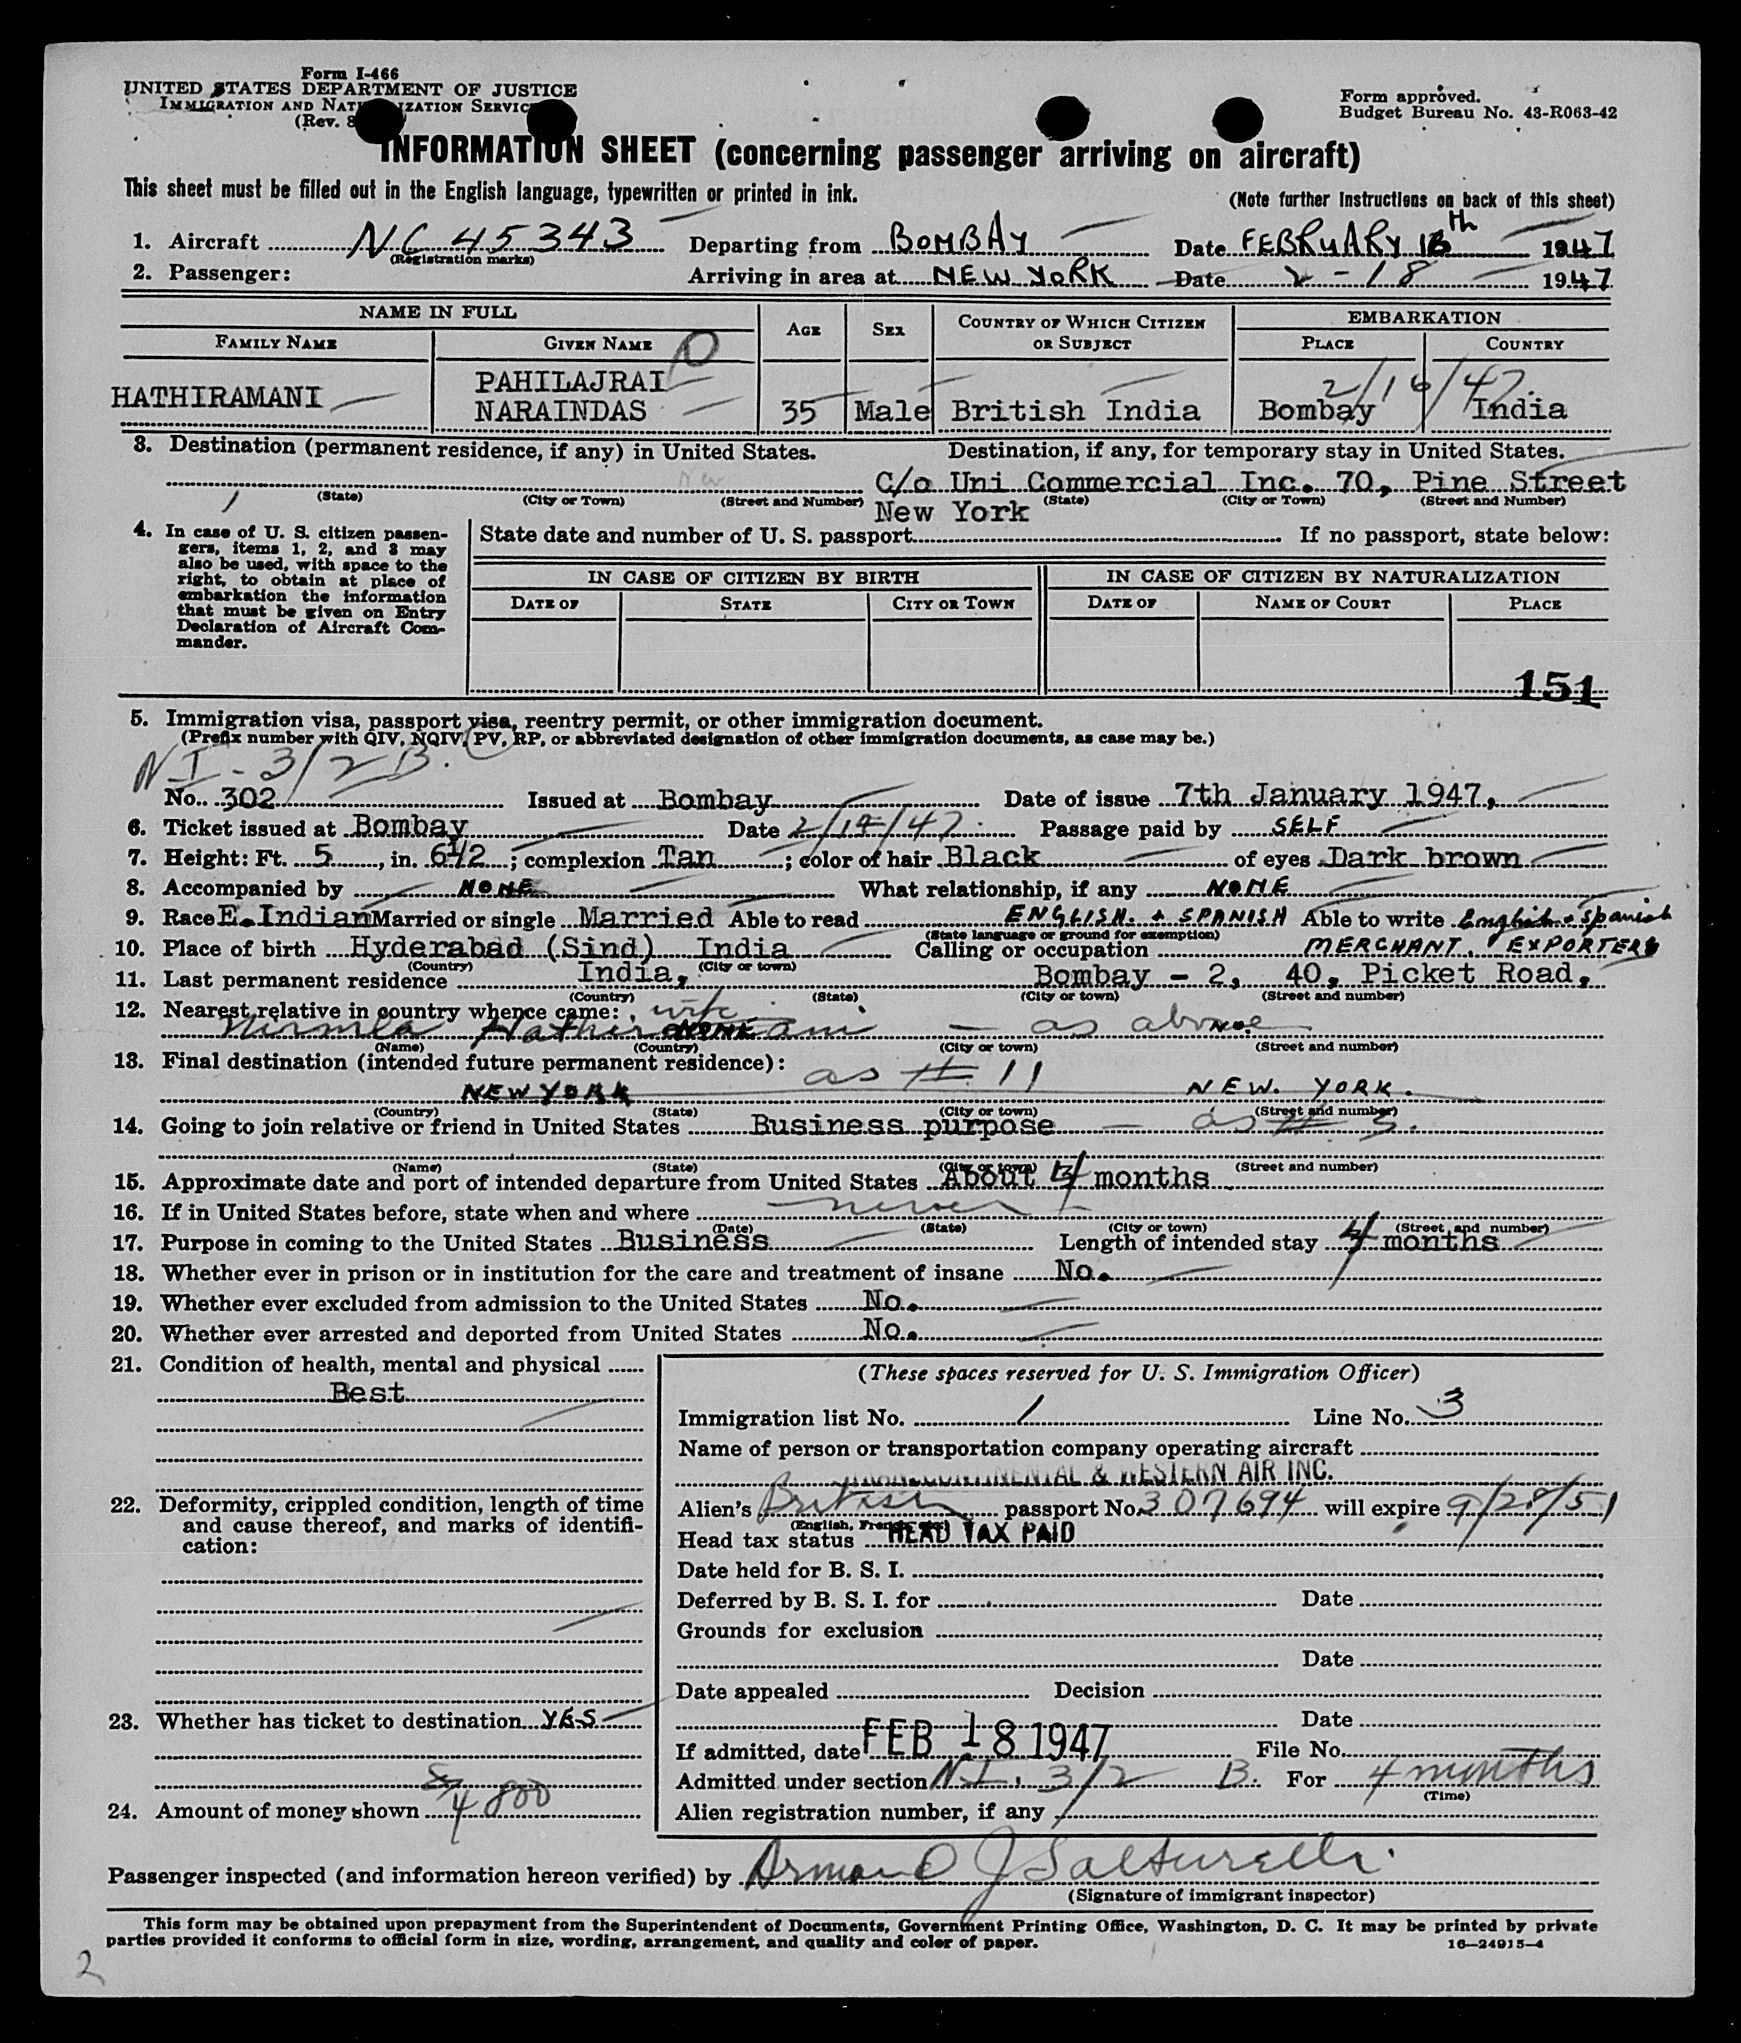 Form I-466
UNITED STATES DEPARTMENT OF JUSTICE
IMMIGRATION AND NATURALIZATION SERVICE
(Rev. 8
Form approved.
Budget Bureau No. 43-R063-42
INFORMATION SHEET (concerning passenger arriving on aircraft)
This sheet must be filled out in the English language, typewritten or printed in ink.
(Note further instructions on back of this sheet)
1. Aircraft NC 45343 Departing from BOMBAY Date FEBRUARY 16th 1947
(Registration marks)
2. Passenger: Arriving in area at NEW YORK Date 2-18 1947
NAME IN FULL AGE SEX COUNTRY OF WHICH CITIZEN OR SUBJECT EMBARKATION
FAMILY NAME GIVEN NAME PLACE COUNTRY
2/16/47.
HATHIRAMANI PAHILAJRAI NARAINDAS 35 Male British India Bombay India
3. Destination (permanent residence, if any) in United States. Destination, if any, for temporary stay in United States.
C/o Uni Commercial Inc. 70, Pine Street
(State) (City or Town) (Street and Number) (State) (City or Town) (Street and Number)
New York
4. In case of U. S. citizen passengers, items 1, 2, and 3 may also be used, with space to the right, to obtain at place of embarkation the information that must be given on Entry Declaration of Aircraft Commander.
State date and number of U. S. passport If no passport, state below:
IN CASE OF CITIZEN BY BIRTH IN CASE OF CITIZEN BY NATURALIZATION
DATE OF STATE CITY OR TOWN DATE OF NAME OF COURT PLACE
151
5. Immigration visa, passport visa, reentry permit, or other immigration document.
(Prefix number with QIV, NQIV, PV, RP, or abbreviated designation of other immigration documents, as case may be.)
N I - 3/2 B.
No. 302 Issued at Bombay Date of issue 7th January 1947,
6. Ticket issued at Bombay Date 2/14/47 Passage paid by SELF
7. Height: Ft. 5, in. 6 1/2; complexion Tan; color of hair Black of eyes Dark brown
8. Accompanied by NONE What relationship, if any NONE
9. Race E. Indian Married or single Married Able to read ENGLISH. + SPANISH Able to write English + Spanish
(State language or ground for exemption)
10. Place of birth Hyderabad (Sind) India Calling or occupation MERCHANT, EXPORTERS
(Country) (City or town)
11. Last permanent residence India, Bombay - 2, 40, Picket Road,
(Country) (State) (City or town) (Street and number)
12. Nearest relative in country whence came: wife
Nirmla Hathiramani NONE - as above
(Name) (Country) (City or town) (Street and number)
13. Final destination (intended future permanent residence): as # 11
NEW YORK NEW. YORK.
(Country) (State) (City or town) (Street and number)
14. Going to join relative or friend in United States Business purpose - as # 3.
(Name) (State) (City or town) (Street and number)
15. Approximate date and port of intended departure from United States About 4 months
16. If in United States before, state when and where never
(Date) (State) (City or town) (Street and number)
17. Purpose in coming to the United States Business Length of intended stay 4 months
18. Whether ever in prison or in institution for the care and treatment of insane No.
19. Whether ever excluded from admission to the United States No.
20. Whether ever arrested and deported from United States No.
21. Condition of health, mental and physical
Best
22. Deformity, crippled condition, length of time and cause thereof, and marks of identification:
23. Whether has ticket to destination YES
24. Amount of money shown 800
(These spaces reserved for U. S. Immigration Officer)
Immigration list No. 1 Line No. 3
Name of person or transportation company operating aircraft
TRANSCONTINENTAL & WESTERN AIR INC.
Alien's British passport No. 307694 will expire 9/29/51
(English, French
Head tax status HEAD TAX PAID
Date held for B. S. I.
Deferred by B. S. I. for Date
Grounds for exclusion
Date
Date appealed Decision
Date
If admitted, date FEB 18 1947 File No.
Admitted under section N.I. 3/2 B. For 4 months
(Time)
Alien registration number, if any
Passenger inspected (and information hereon verified) by Armand J Salturelli
(Signature of immigrant inspector)
This form may be obtained upon prepayment from the Superintendent of Documents, Government Printing Office, Washington, D. C. It may be printed by private
parties provided it conforms to official form in size, wording, arrangement, and quality and color of paper.
16-24915-4
2